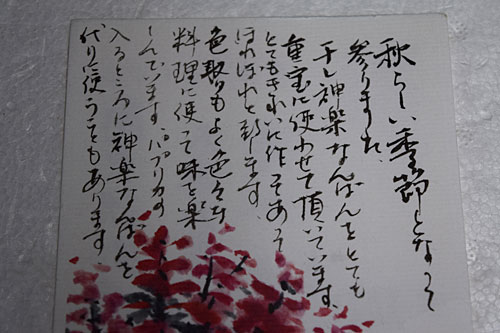 秋らしい季節となって
参りました。
干し神楽なんばんをとても
重宝に使わせて頂いています。
とてもきれいに作ってあって
ほれぼれと致します。
色取りもよく色々な
料理に使って味を楽
しんでいます パプリカの
入るところに神楽なんばんを
代り使うこともあります